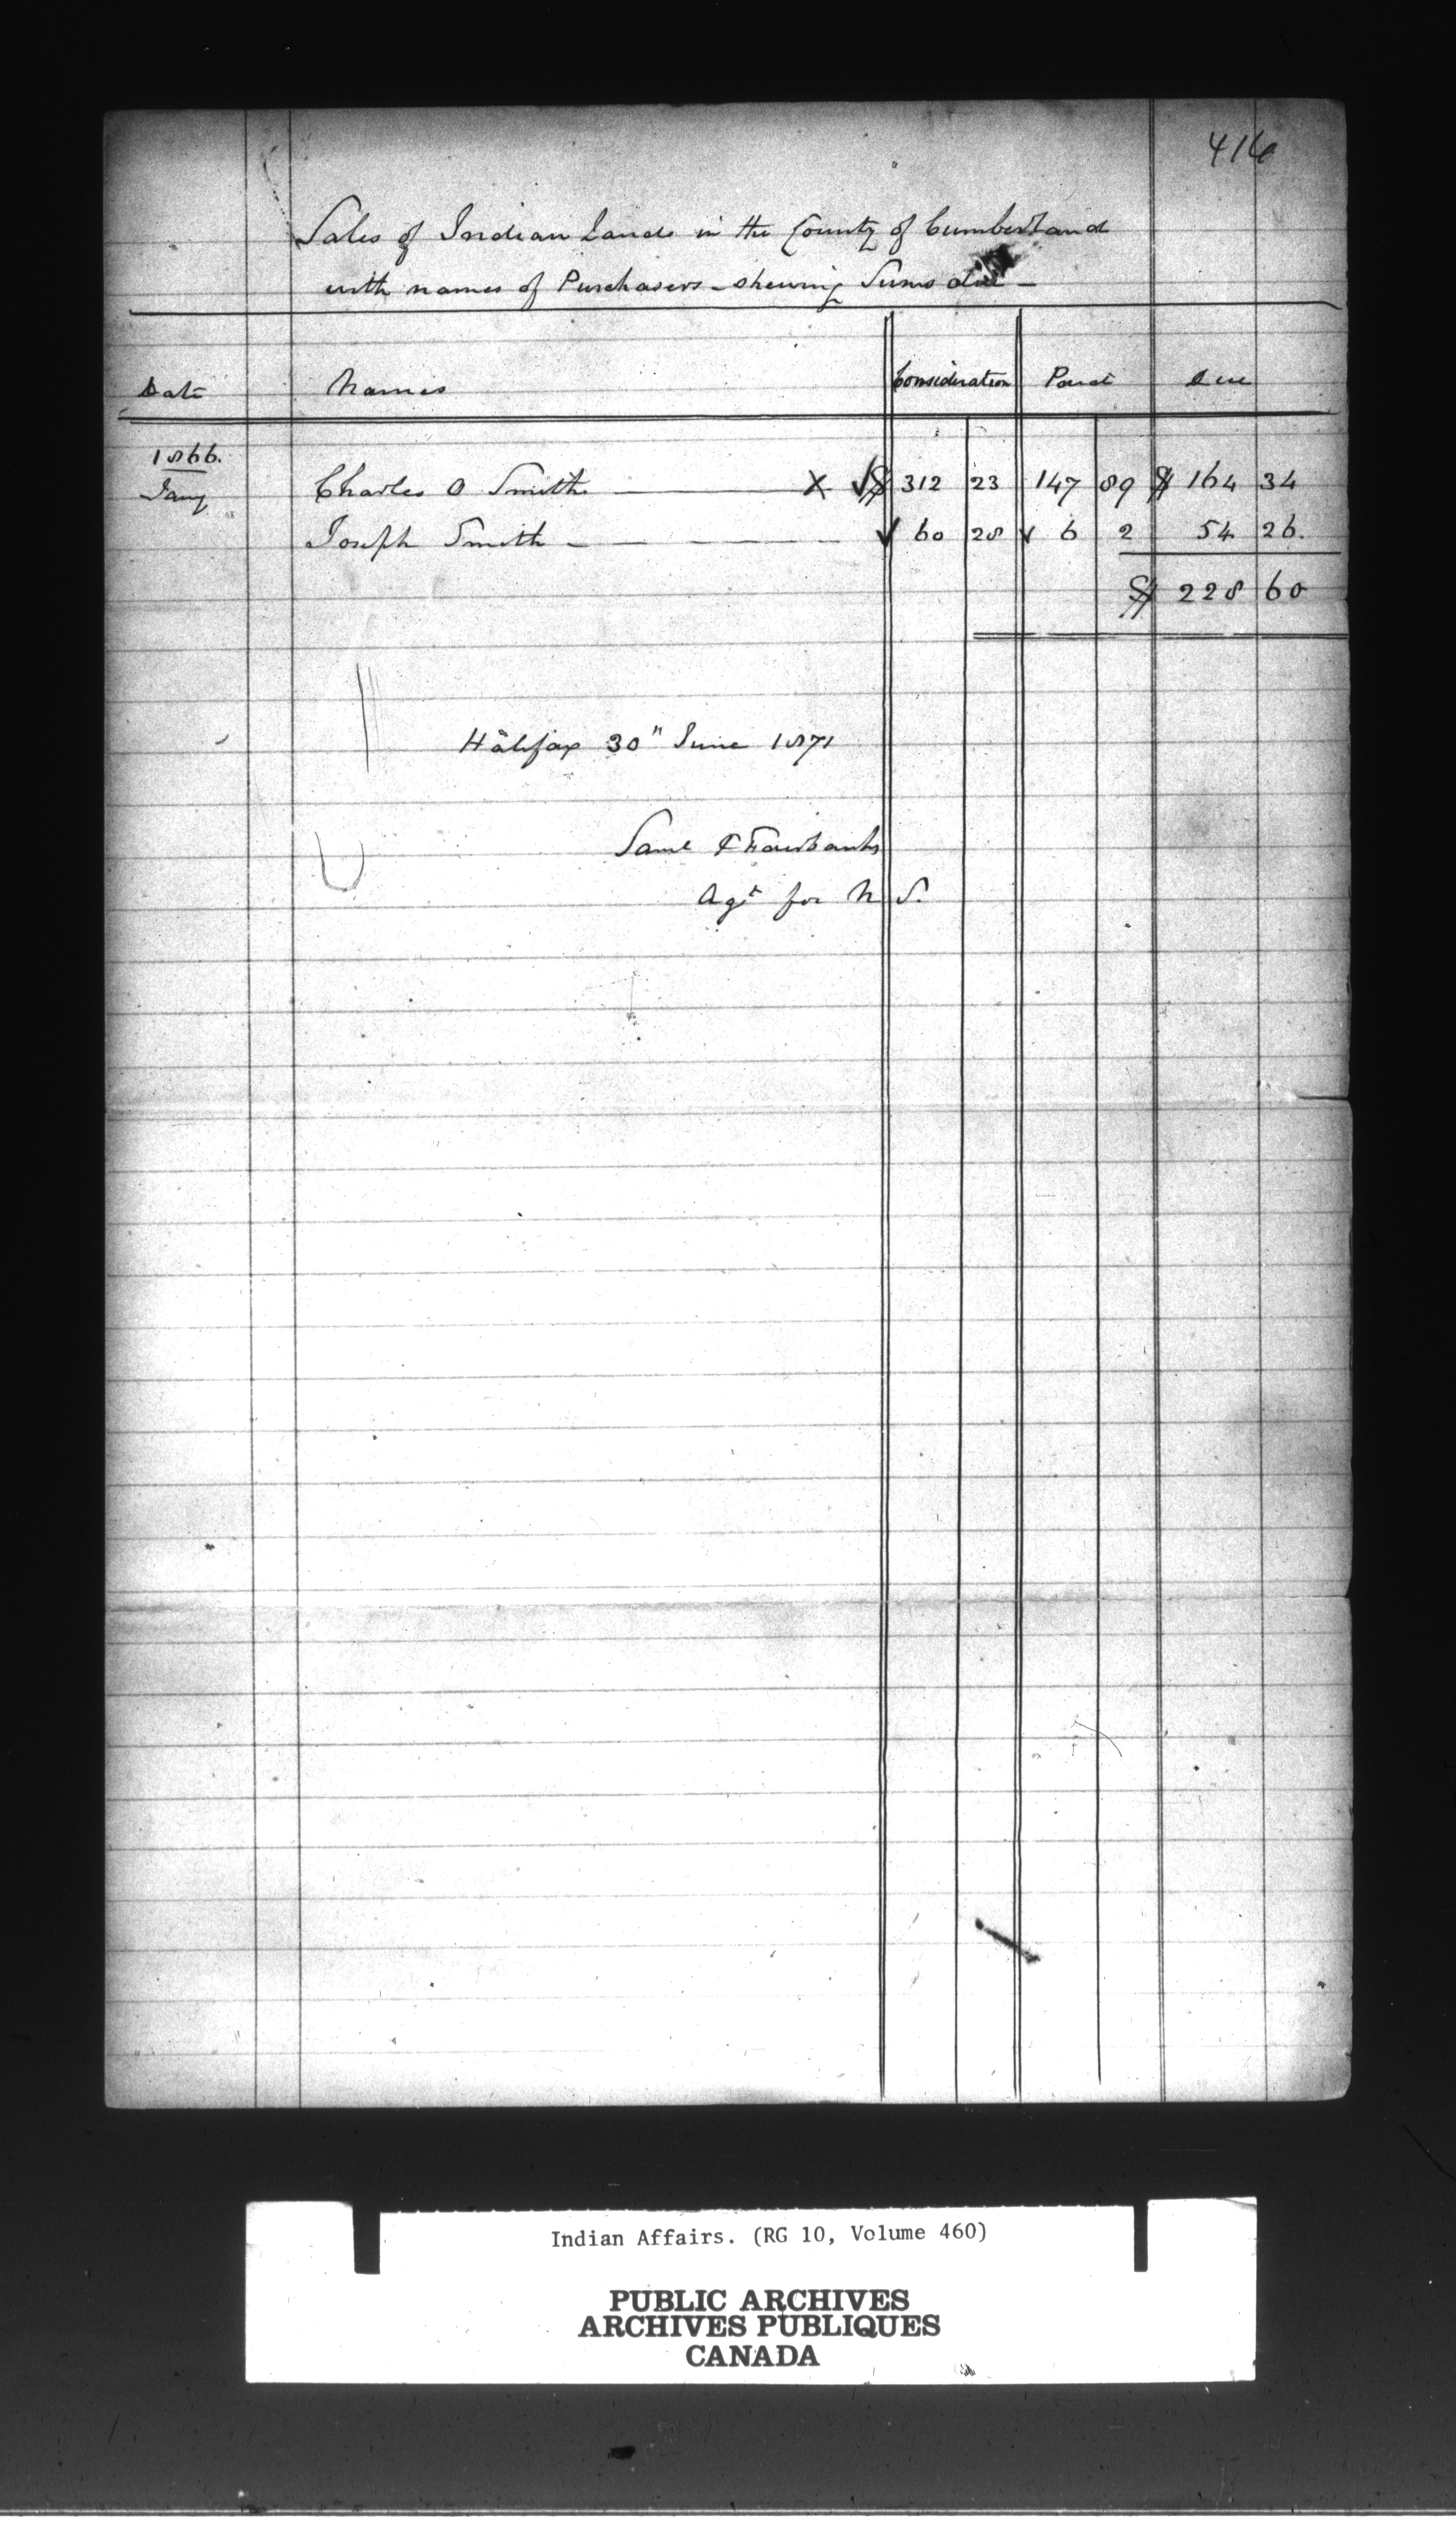 416
Sales of Indian Lands in the County of Cumberland
with names of Purchasers - shewing Sums due -
Date Names Consideration Paid Due
1866.
Jany Charles O Smith X √ $ 312 23 147 89 $ 164 34
Joseph Smith - — — — √ 60 28 √ 6 2 54 26.
$ 228 60
Halifax 30" June 1871
Saml P Fairbanks
Agt for N S.
Indian Affairs. (RG 10, Volume 460)
PUBLIC ARCHIVES
ARCHIVES PUBLIQUES
CANADA